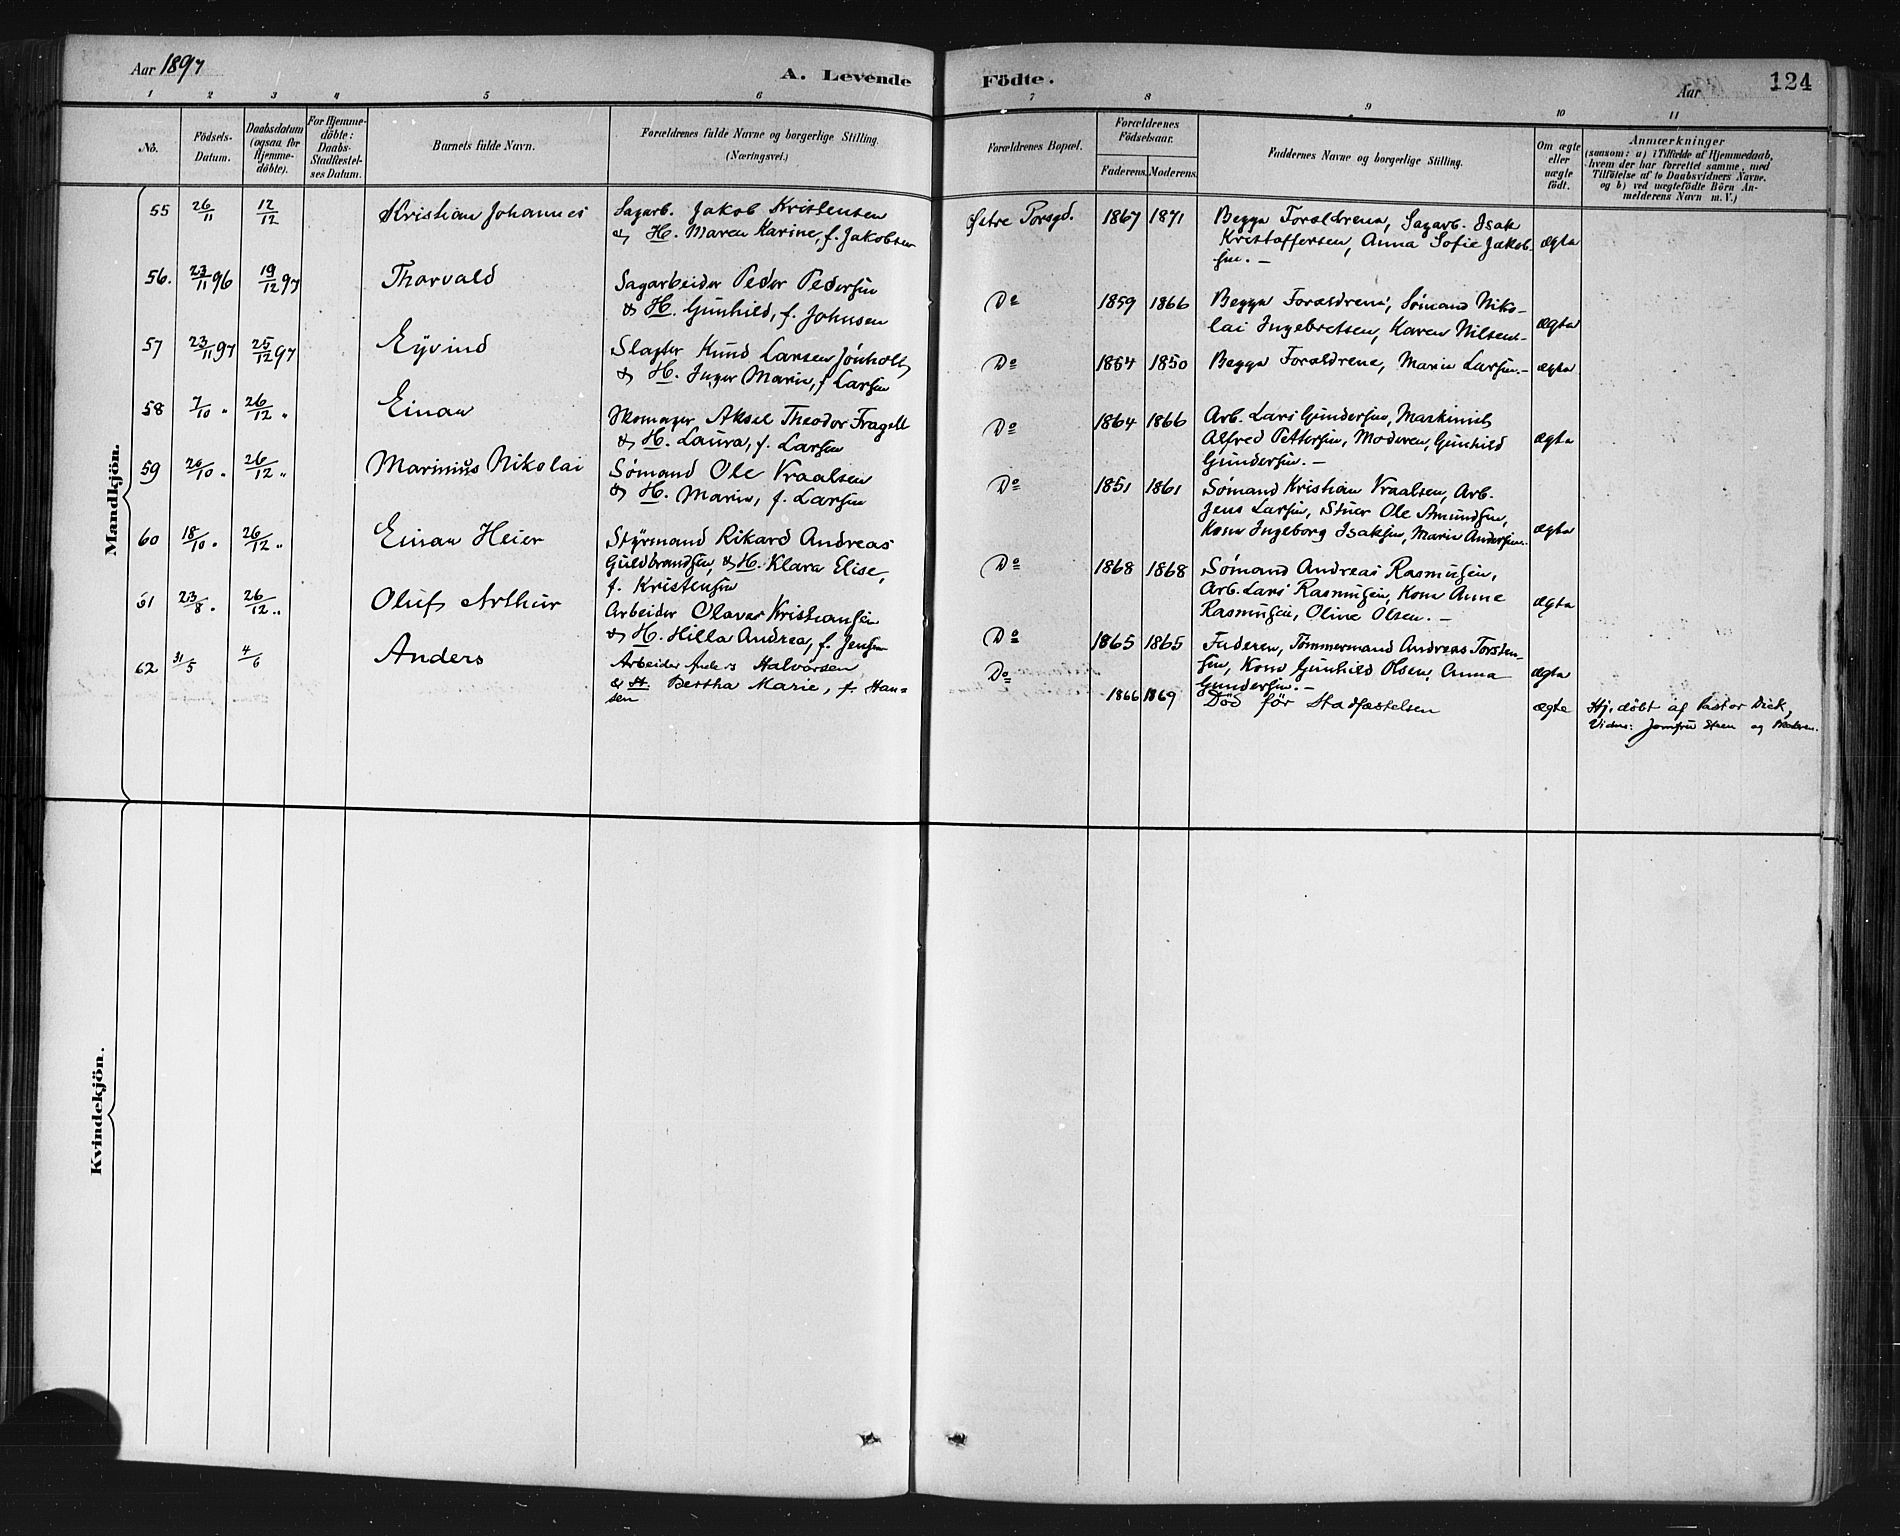 Aar 1897
A. Levende
Födte.
Aar
124
1 2 3 4 5 6 7 8 9 10 11
No.
Födsels-
Datum.
Daabsdatum
(ogsaa for
Hjemme-
döbte).
For Hjemme-
döbte:
Daabs-
Stadfæstel-
ses Datum.
Barnets fulde Navn.
Forældrenes fulde Navne og borgerlige Stilling.
(Næringsvei.)
Forældrenes Bopæl.
Forældrenes
Födselsaar.
Faderens. Moderens.
Faddernes Navne og borgerlige Stilling.
Om ægte
eller
uægte
födt.
Anmærkninger
(saasom: a) i Tilfælde af Hjemmedaab,
hvem der har forrettet samme, med
Tilföielse af to Daabsvidners Navne,
og b) ved uægtefödte Börn An-
melderens Navn m. V.)
Mandkjön.
55 26/11 12/12 Kristian Johannes
Sagarb. Jakob Kristensen
& H. Maren Karine, f. Jakobsen
Østre Porsgd. 1867 1871
Begge Forældrene, Sagarb. Isak
Kristoffersen, Anna Sofie Jakob-
sen. —
ægte
56. 23/11 96 19/12 97 Thorvald
Sagarbeider Peder Pedersen
& H. Gunhild, f. Johnsen
Do 1859 1866
Begge Forældrene, Sømand Niko-
lai Ingebretsen, Karen Nilsen.-
ægte
57 23/11 97 25/12 97 Eyvind
Slagter Knud Larsen Jønholt
& H. Inger Marie, f Larsen
Do 1854 1850
Begge Forældrene, Marie Larsen.-
ægte
58 7/10 " 26/12 " Einar
Skomager Aksel Theodor Fragell
& H. Laura, f. Larsen
Do 1864 1866
Arb. Lars Gundersen, Maskinist
Alfred Pettersen, Moderen, Gunhild
Gundersen. —
ægte
59 26/10 " 26/12 " Marinius Nikolai
Sømand Ole Vraalsen
& H. Marie, f. Larsen
Do 1851 1861
Sømand Kristian Vraalsen, Arb.
Jens Larsen, Stuer Ole Amundsen,
Kone Ingeborg Isaksen, Marie Andersen.
ægte
60 18/10 " 26/12 " Einar Heier
Styrmand Rikard Andreas
Guldbrandsen, & H. Klara Elise,
f. Kristensen
Do 1868 1868
Sømand Andreas Rasmusen,
Arb. Lars Rasmusen, Kone Anne
Rasmusen, Oline Olsen. —
ægte
61 23/8 " 26/12 " Oluf Arthur
Arbeider Olaves Kristiansen
& H. Hilla Andrea, f. Jensen
Do 1865 1865
Faderen, Tømmermand Andreas Torsten-
sen, Kone Gunhild Olsen, Anna
Gundersen. —
ægte
62 31/5 4/6 Anders
Arbeider Anders Halvorsen
& H. Bertha Marie, f. Han-
sen
Do 1866 1869
Död för Stadfæstelsen
ægte
Hj. döbt af Pastor Dick,
Vidner: Jomfru Steen og Moderen.
Kvindekjön.